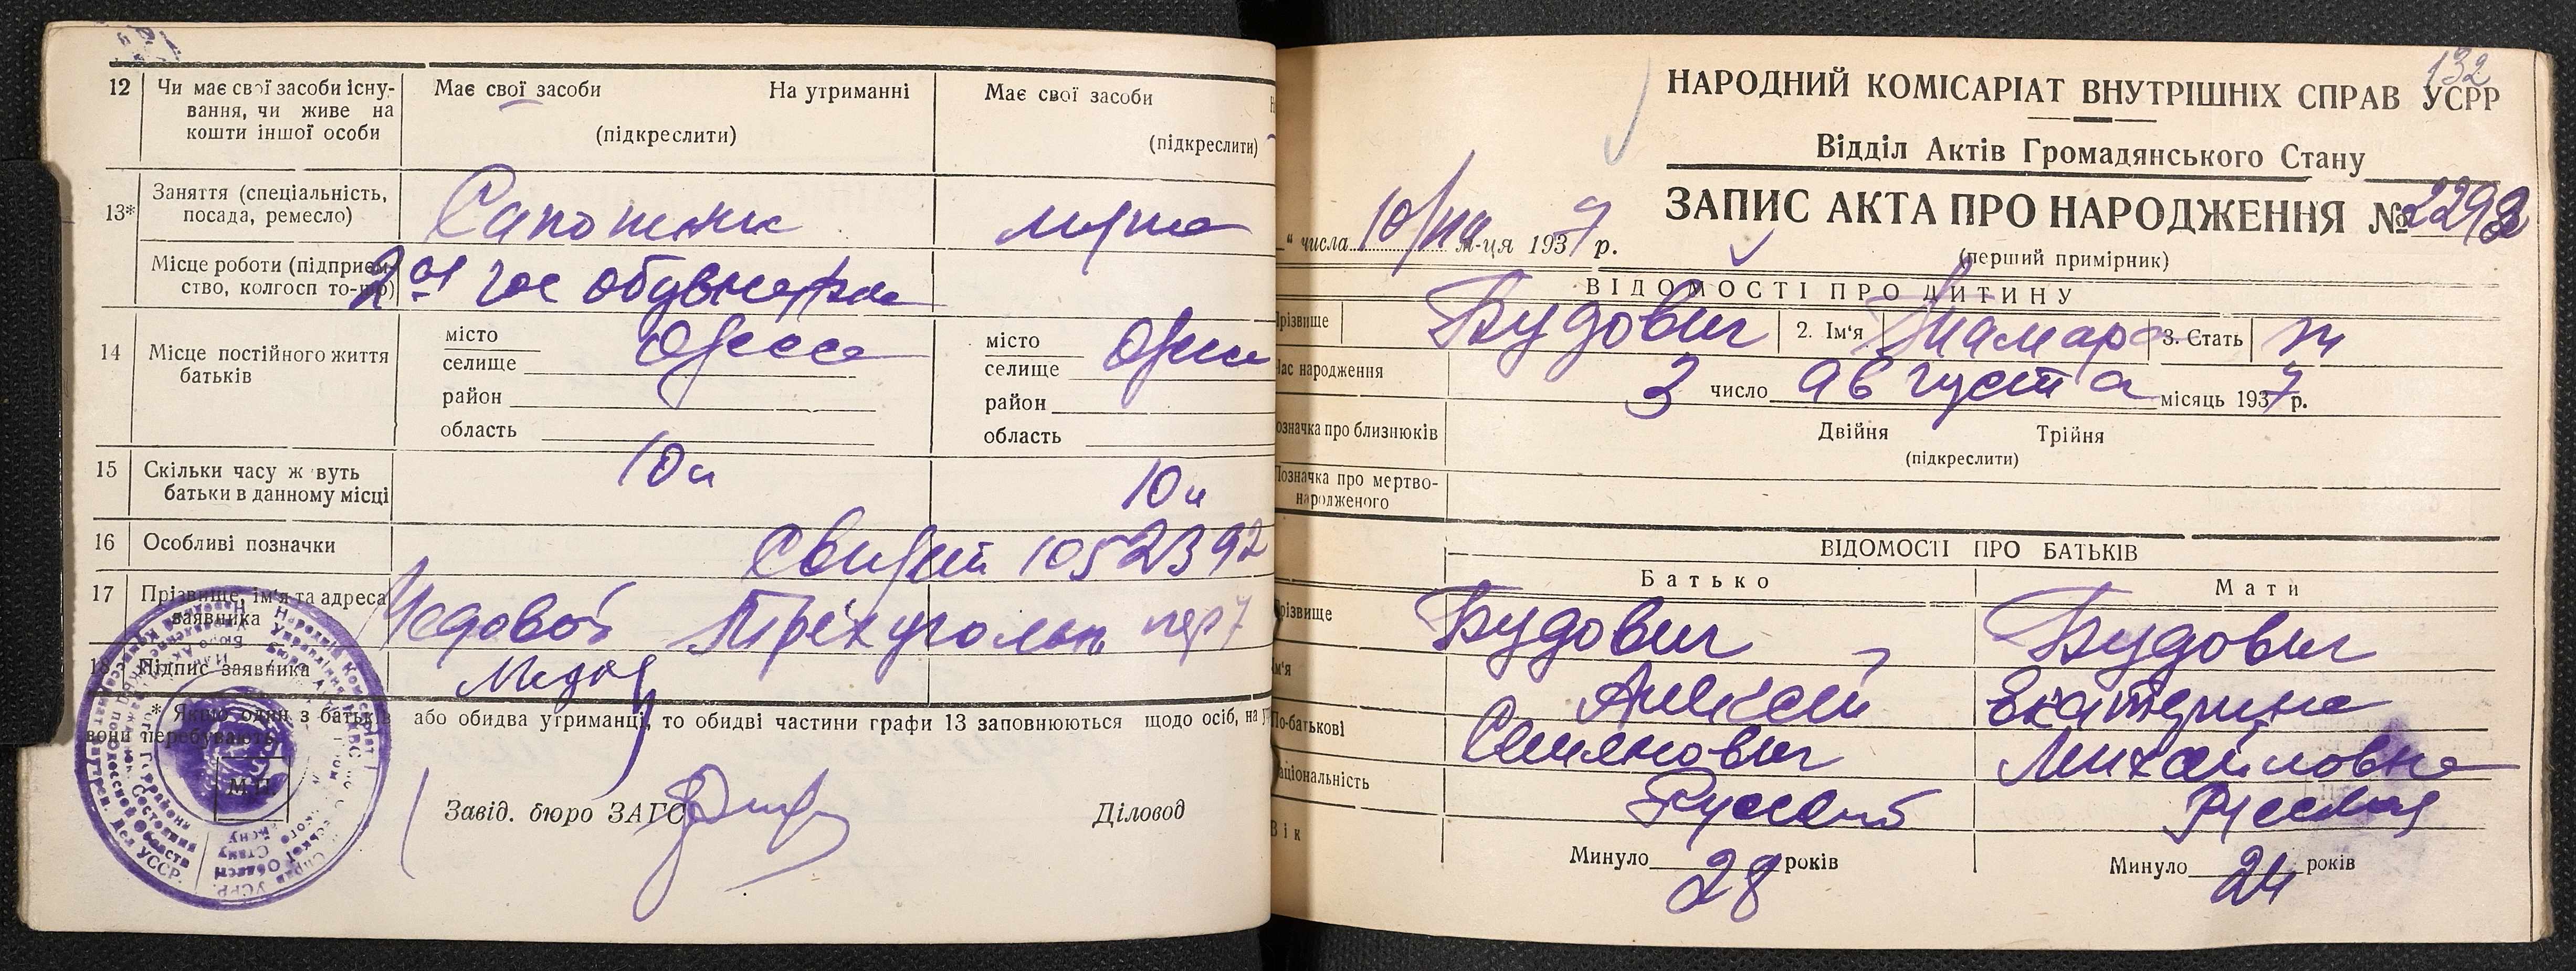 12 Чи має свої засоби існу-
вання, чи живе на
кошти іншої особи
Має свої засоби На утриманні
(підкреслити)
Має свої засоби
(підкреслити)
13* Заняття (спеціальність,
посада, ремесло)
Сапожник
мужа
Місце роботи (підприєм-
ство, колгосп то-що)
2ая гос обувн ф-ка
14 Місце постійного життя
батьків
місто
селище
Одесса
район
область
місто
селище
Одесса
район
область
15 Скільки часу живуть
батьки в данному місці
10 л
10 л
16 Особливі позначки
Свидет 1052392
17 Прізвище, ім'я та адреса
заявника
Трехугольн пер 7
18 Підпис заявника
* Якщо один з батьків або обидва утриманці, то обидві частини графи 13 заповнюються щодо осіб, на у
вони перебувають.
М.П.
Завід. бюро ЗАГС
Діловод
132
НАРОДНИЙ КОМІСАРІАТ ВНУТРІШНІХ СПРАВ УСРР
Відділ Актів Громадянського Стану
ЗАПИС АКТА ПРО НАРОДЖЕННЯ № 2298
" числа 10/ м-ця 1937 р.
(перший примірник)
ВІДОМОСТІ ПРО ДИТИНУ
Прізвище Будович 2. Ім'я Тамара 3. Стать ж
Час народження 3 число августа місяць 1937 р.
Позначка про близнюків Двійня Трійня
(підкреслити)
Позначка про мертво-
народженого
ВІДОМОСТІ ПРО БАТЬКІВ
Батько Мати
Прізвище Будович Будович
Ім'я Алексей Екатерина
По-батькові Семенович Михайловна
Національність Русский Русская
Вік Минуло 28 років Минуло 24 років